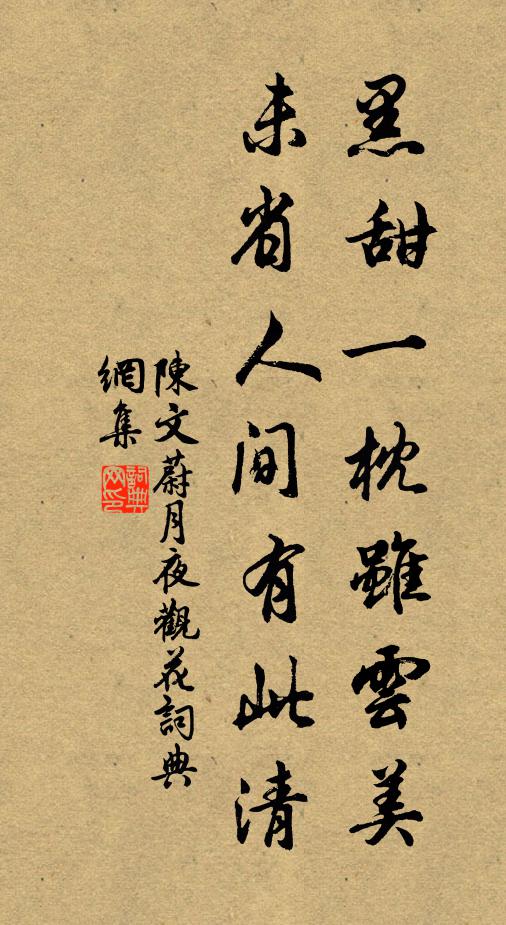 黑甜一枕雖雲美
未省人間有此清
陳文蔚月夜觀花詞典
網集
詞典網印